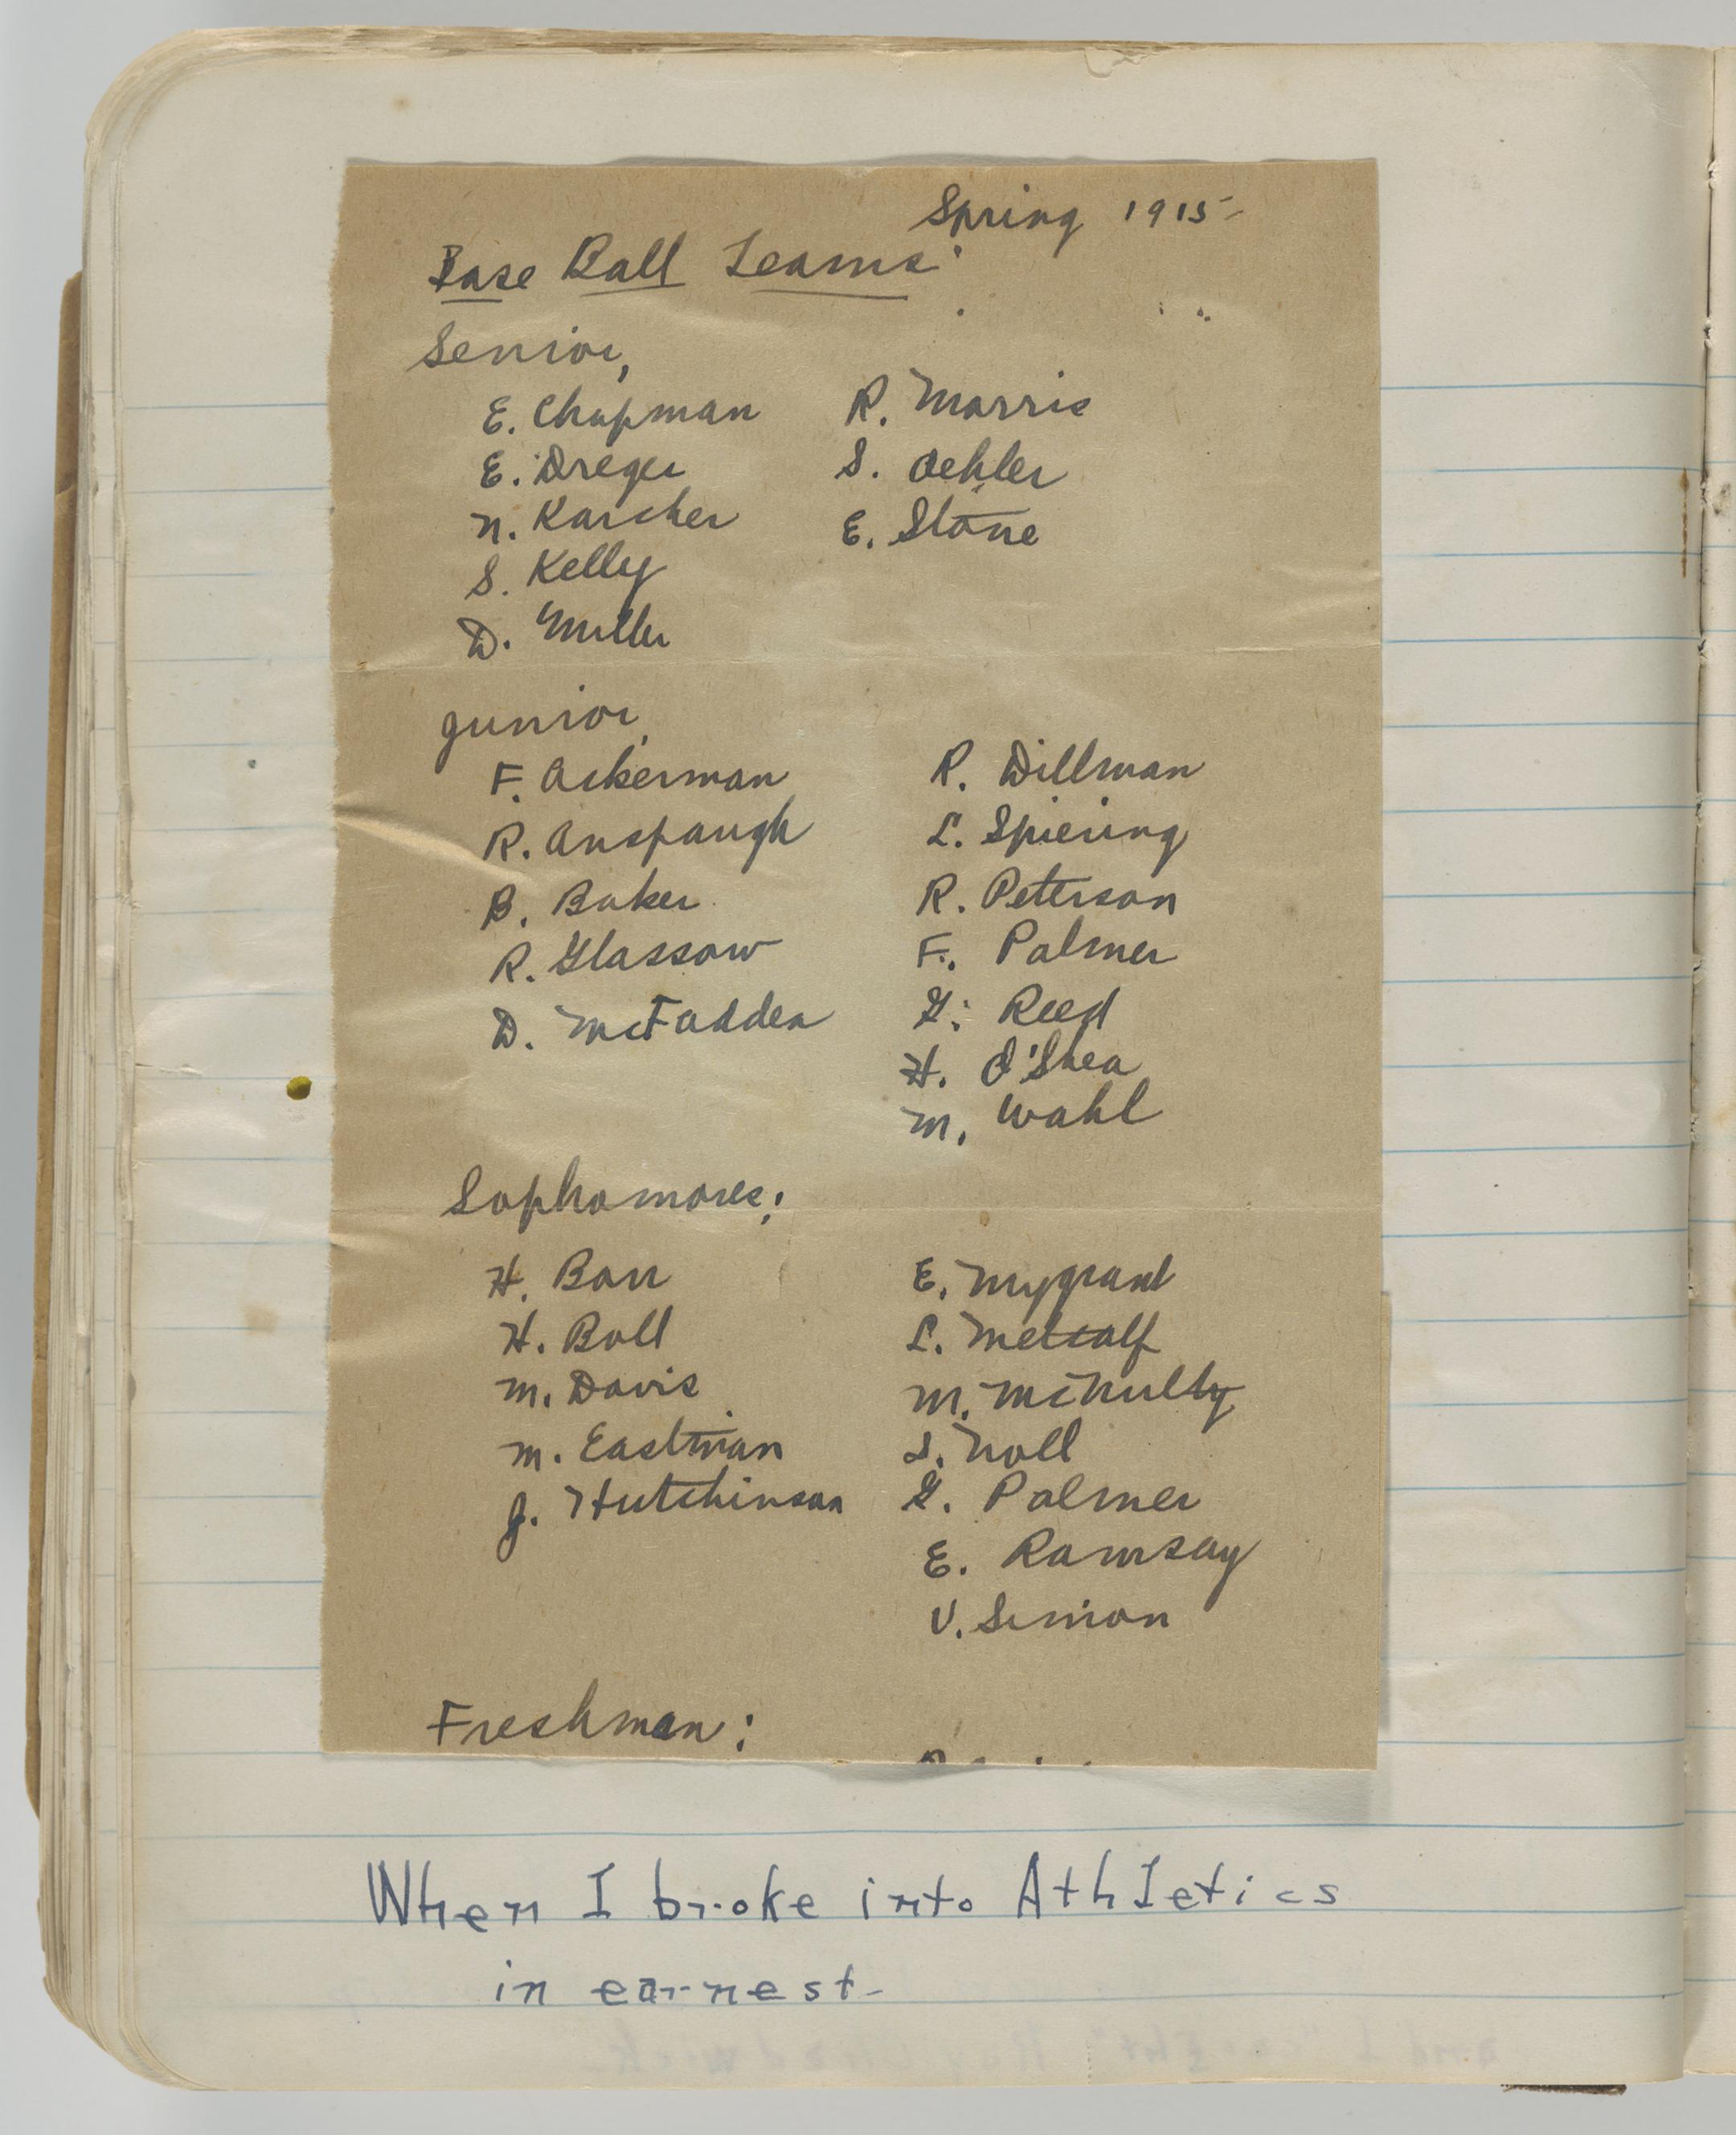 Spring 1915
Base Ball Teams:
Senior,
E. Chapman
E. Dreger
N. Karcher
S. Kelly
D. Miller
R. Morris
S. Oehler
E. Stone
Junior,
F. Ackerman
R. Anspaugh
B. Baker
R. Glassow
D. McFadden
R. Dillman
L. Spiering
R. Peterson
F. Palmer
G. Reed
H. O'Shea
M. Wahl
Sophomores;
H. Barr
H. Boll
M. Davis
M. Eastman
J. Hutchinson
E. Mygrant
L. Metcalf
M. McNulty
L. Noll
G. Palmer
E. Ramsay
V. Simon
Freshman:
When I broke into Athletics
in earnest-